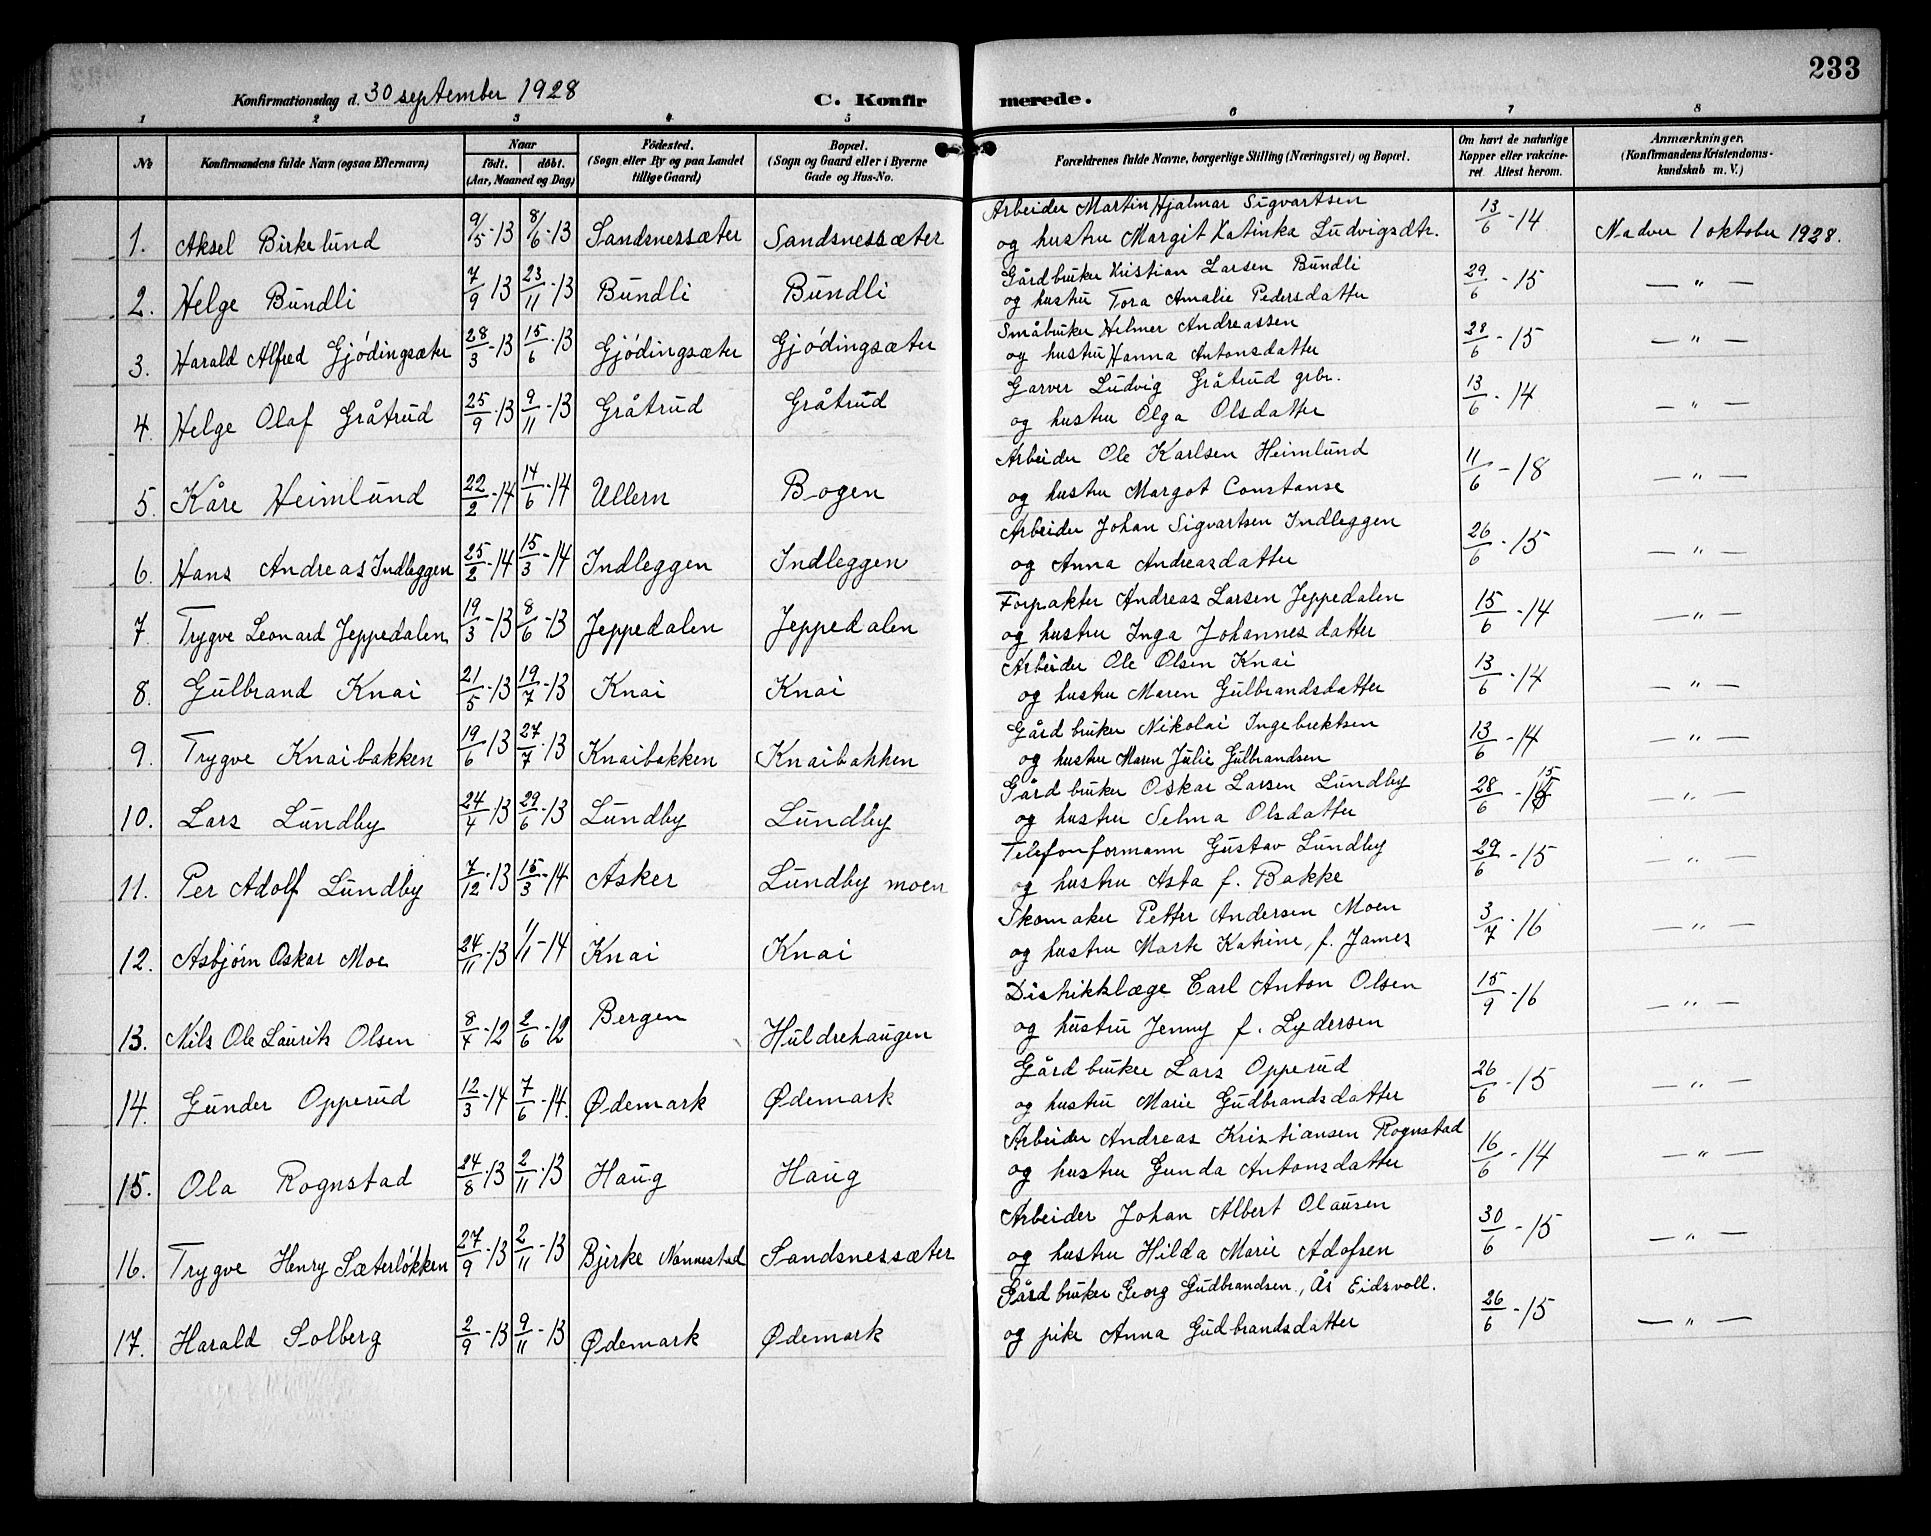 233
Konfirmationsdag d. 30 september 1928 C. Konfirmerede.
1 2 3 4 5 6 7 8
№ Konfirmandens fulde Navn (ogsaa Efternavn) Naar født. døbt. (Aar, Maaned og Dag) Fødested. (Sogn eller By og paa Landet tillige Gaard) Bopæl. (Sogn og Gaard eller i Byerne Gade og Hus-No. Forældrenes fulde Navne, borgerlige Stilling (Næringsvei) og Bopæl. Om havt de naturlige Kopper eller vakcineret. Attest herom. Anmærkninger, (Konfirmandens Kristendomskundskab m. V.)
Arbeider Martin Hjalmar Sigvartsen
1. Aksel Birkelund 9/5-13 8/6-13 Sandsnessæter Sandsnessæter og hustru Margit Katinka Ludvigsdtr. 13/6-14 Nadver 1 oktober 1928.
Gårdbruker Kristian Larsen Bundli
2. Helge Bundli 7/9-13 23/11-13 Bundli Bundli og hustru Tora Amalie Pedersdatter 29/6-15 — " —
Småbruker Helmer Andreassen
3. Harald Alfred Gjødingsæter 28/3-13 15/6-13 Gjødingsæter Gjødingsæter og hustru Hanna Antonsdatter 28/6-15 — " —
Garver Ludvig Gråtrud grbr.
4. Helge Olaf Gråtrud 25/9-13 9/11-13 Gråtrud Gråtrud og hustru Olga Olsdatter 13/6-14 — " —
Arbeider Ole Karlsen Heimlund
5. Kåre Heimlund 22/2-14 14/6-14 Ullern Bogen og hustru Margot Constanse 11/6-18 — " —
Arbeider Johan Sigvartsen Indleggen
6. Hans Andreas Indleggen 25/2-14 15/3-14 Indleggen Indleggen og Anna Andreasdatter 26/6-15 — " —
Forpakter Andreas Larsen Jeppedalen
7 Trygve Leonard Jeppedalen 19/3-13 8/6-13 Jeppedalen Jeppedalen og hustru Inga Johannesdatter 15/6-14 — " —
Arbeider Ole Olsen Knai
8. Gulbrand Knai 21/5-13 19/7-13 Knai Knai og hustru Maren Gulbrandsdatter 13/6-14 — " —
Gårdbruker Nikolai Ingebrektsen
9. Trygve Knaibakken 19/6-13 27/7-13 Knaibakken Knaibakken og hustru Maren Julie Gulbrandsen 13/6-14 — " —
Gårdbruker Oskar Larsen Lundby
10. Lars Lundby 24/4-13 29/6-13 Lundby Lundby og hustru Selma Olsdatter 28/6-15 — " —
Telefonformann Gustav Lundby
11. Per Adolf Lundby 7/12-13 15/3-14 Asker Lundby moen og hustru Asta f. Bakke 29/6-15 — " —
Skomaker Petter Andersen Moen
12. Asbjørn Oskar Moe 24/11-13 1/1-14 Knai Knai og hustru Katrine, f. James 3/7-16 — " —
Distriktslæge Carl Anton Olsen
13. Nils Ole Laurits Olsen 8/4-12 2/6-12 Bergen Huldrehaugen og hustru Jenny f. Lydersen 15/9-16 — " —
Gårdbruker Lars Opperud
14. Gunder Opperud 12/3-14 7/6-14. Ødemark Ødemark og hustru Marie Gudbrandsdatter 26/6-15 — " —
Arbeider Andreas Kristiansen Rognstad
15. Ola Rognstad 24/8-13 2/11-13 Haug Haug og hustru Gunda Antonsdatter 16/6-14 — " —
Arbeider Johan Albert Olausen
16. Trygve Henry Sæterløkken 27/9-13 2/11-13 Bjerke Nannestad Sandsnessæter og hustru Hilda Marie Adofsen 30/6-15 — " —
Gårdbruker Georg Gudbrandsen, Ås Eidsvoll.
17. Harald Solberg 2/9-13 9/11-13 Ødemark Ødemark og pike Anna Gudbrandsdatter 26/6-15 — " —